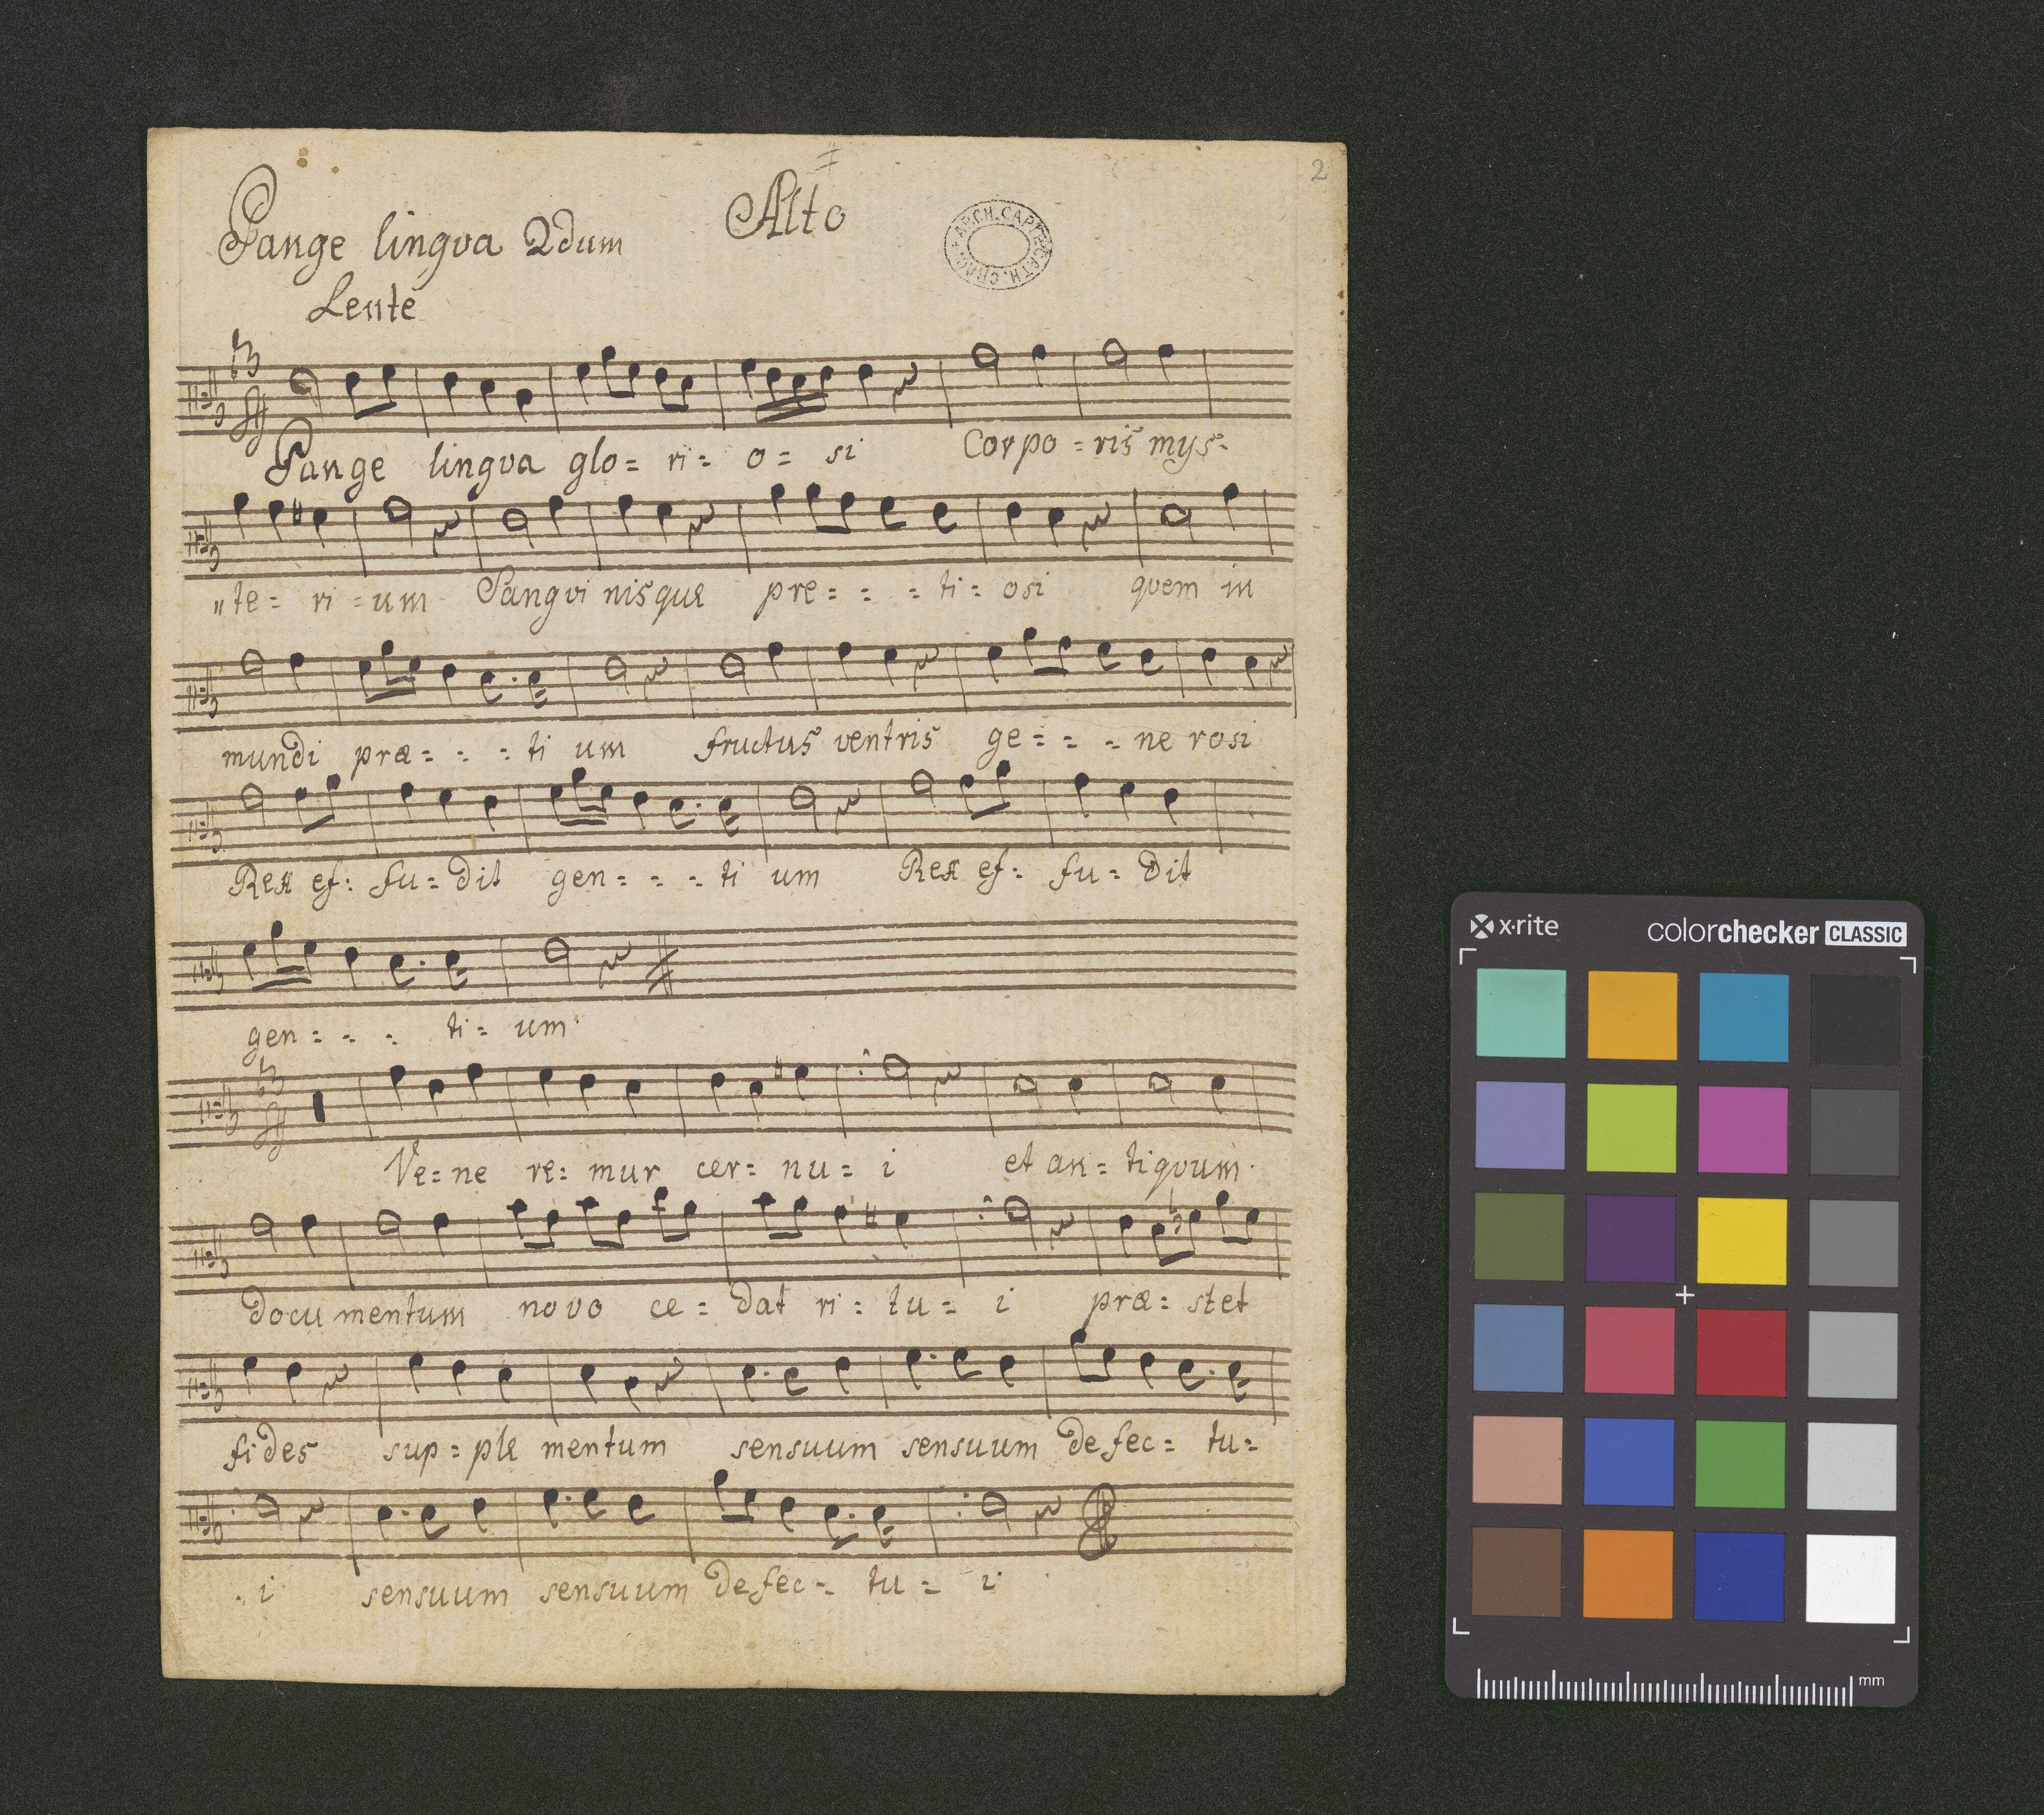 2
Pange lingva 2dum Alto
ARCH. CAPIT. CATH. CRAC.
Lente
Pange lingva glo= ri= o= si Corpo=ris mys=
"te= ri=um Sangvi nisque pre= = = ti= osi qvem in
mundi præ= = = ti um fructus ventris ge= = = ne rosi
Rex ef= fu=dit gen= = = ti um Rex ef= fu=dit
gen= = = ti= um
Ve=ne re= mur cer= nu= i et an=tiqvum
docu mentum novo ce= dat ri= tu= i præ= stet
fides sup=ple mentum sensuum sensuum defec= tu=
i sensuum sensuum defec= tu= i
x·rite colorchecker CLASSIC
mm